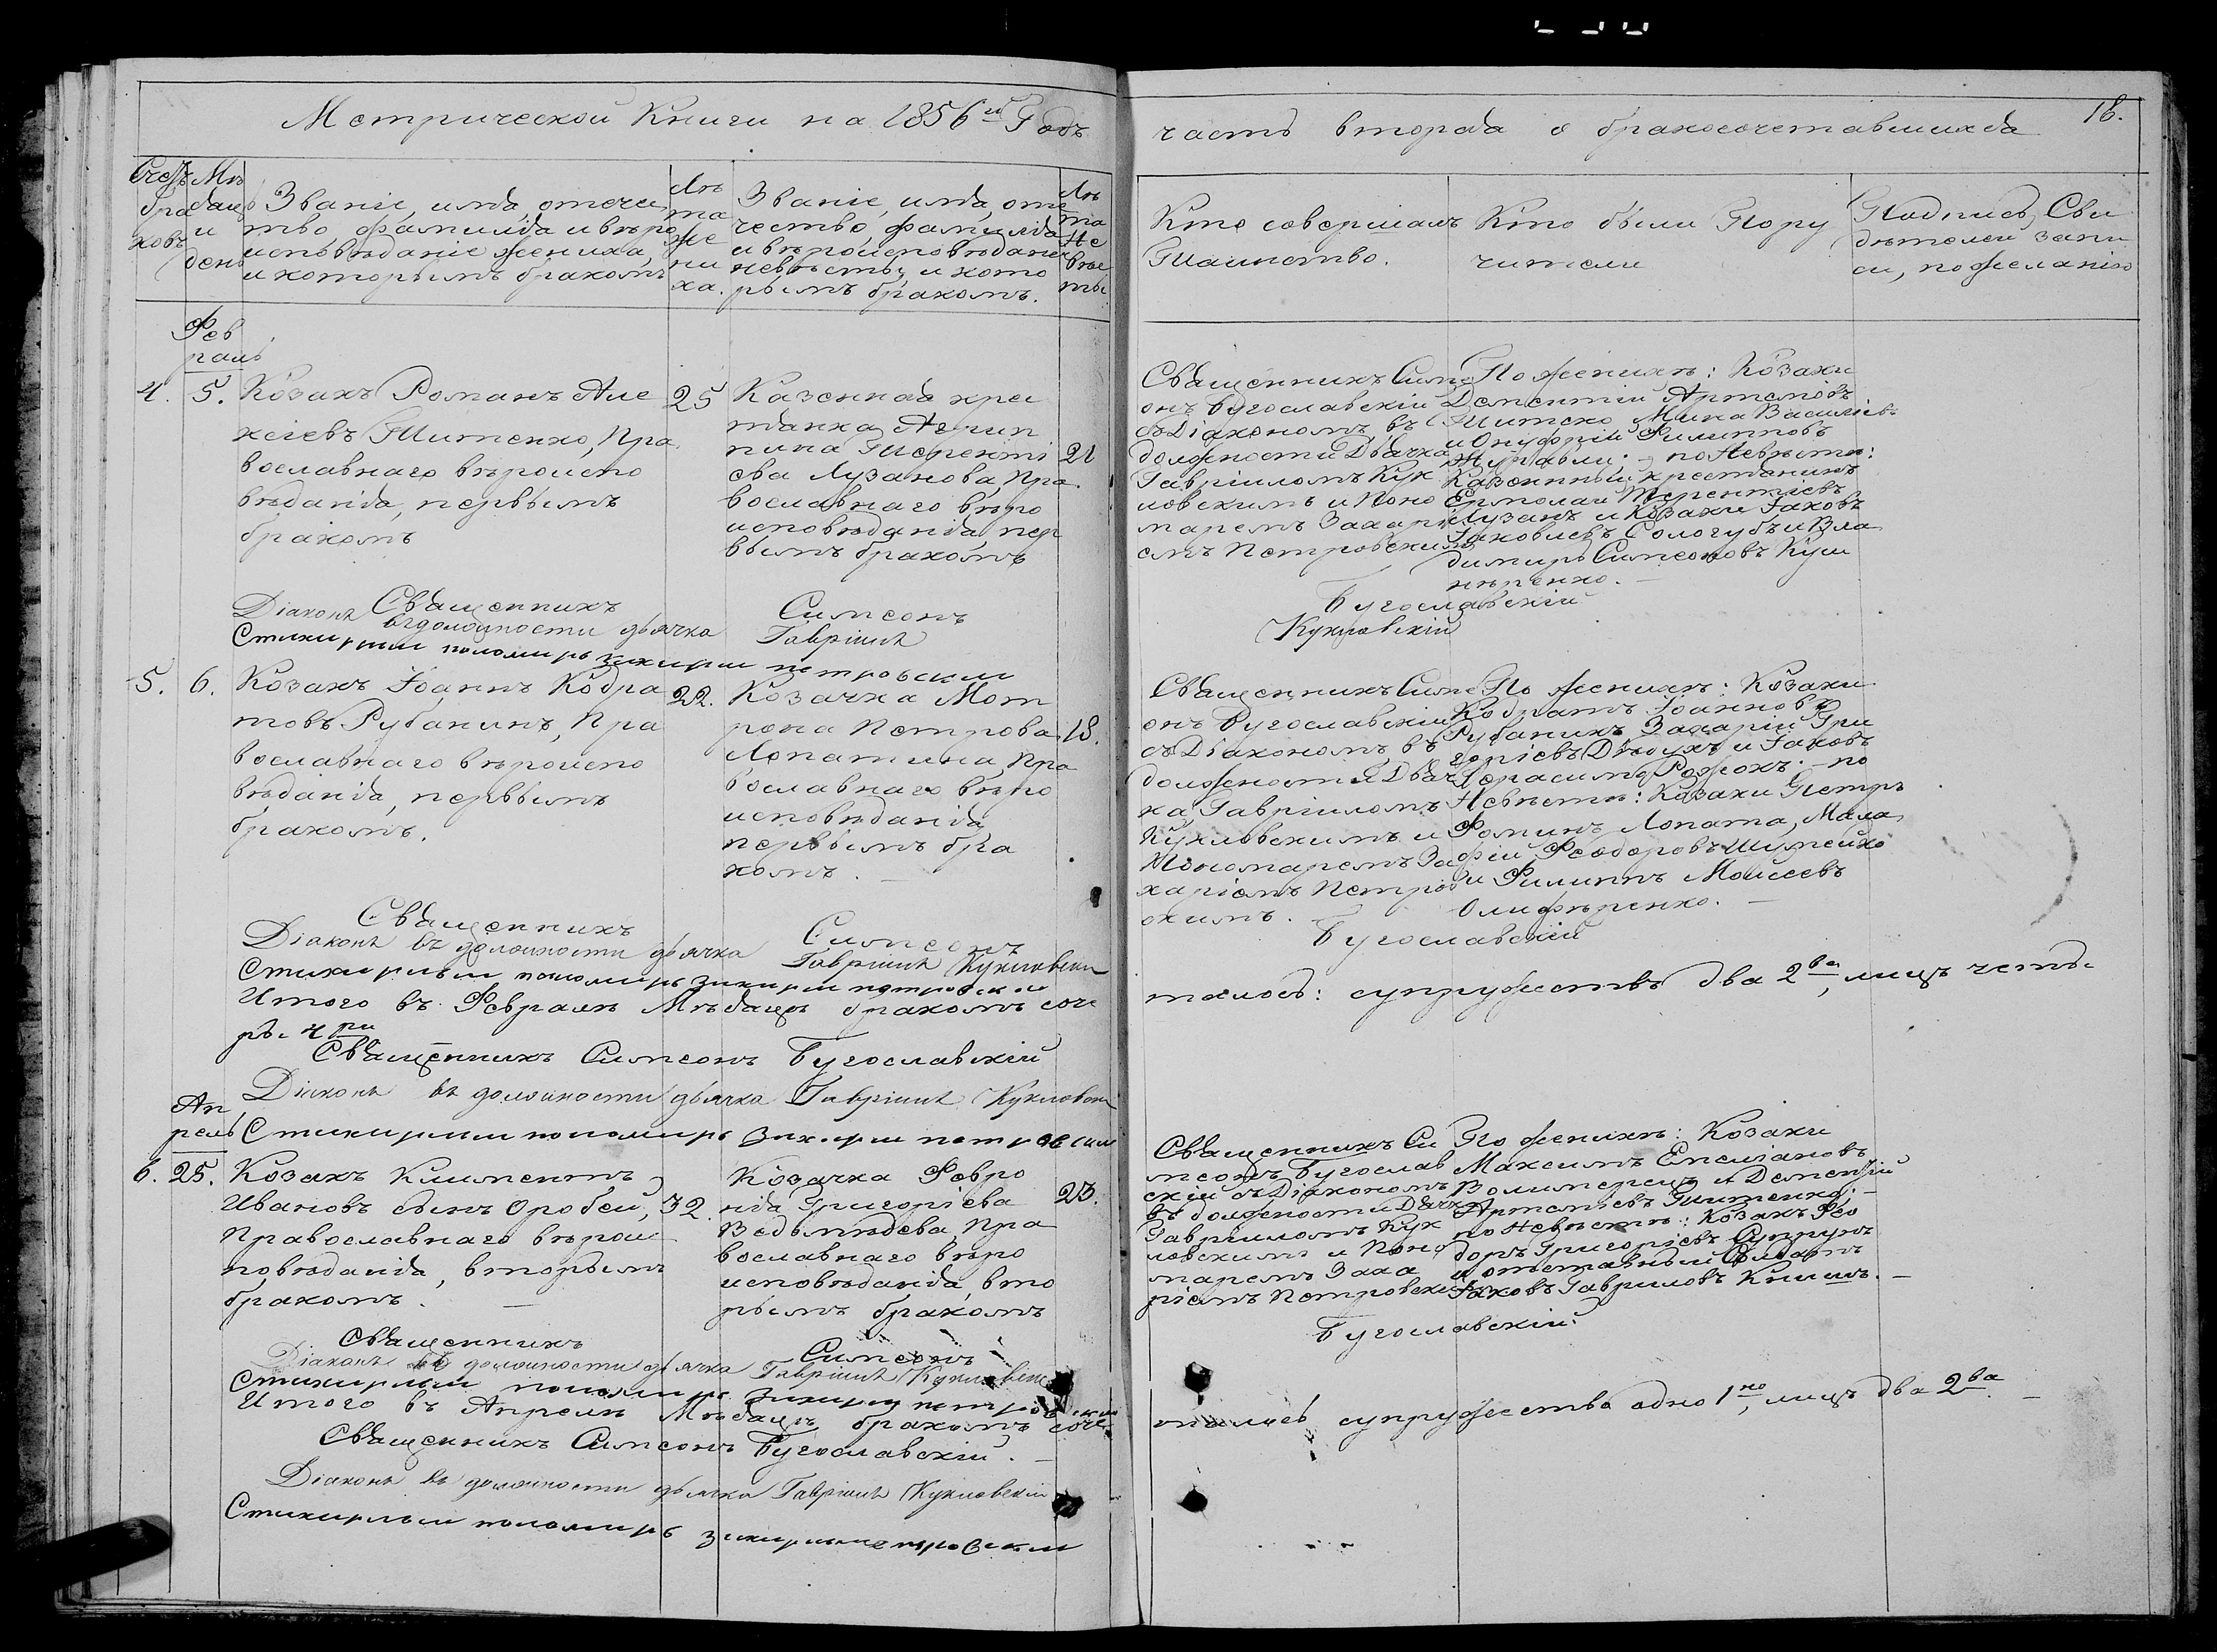 Метрической Книги на 1856й Годъ
часть вторая о бракосочетавшихся
18.
Счетъ браковъ
Мѣсяцъ и день
Званіе, имя, отече
тво, фамилія и вѣро
исповѣданіе жениха,
и которымъ бракомъ
Лѣ
та
же
ни
ха.
Званіе, имя, оте
чество, фамилія
и вѣроисповѣданіе
невѣсты, и кото
рымъ бракомъ.
Лѣ
та
Не
вѣс
ты.
Кто совершалъ
Таинство.
Кто были Пору
чители
Подпись Сви
дѣтелей запи
си, по желанію
Фев
раль
4. 5.
Козакъ Романъ Але
ксіевъ Титенко, Пра
вославнаго вѣроиспо
вѣданія, первымъ
бракомъ
25
Казенная крес
тянка Агрип
пина Теренті
ева Лузанова, Пра
вославнаго вѣро
исповѣданія, пер
вымъ бракомъ
21
Священникъ Симе
онъ Бугославскій
съ Діакономъ въ
должности Дьячка
Гавріиломъ Кук
ловскимъ и Поно
маремъ Захарі
емъ Петровскимъ
По женихѣ: Козаки
Дементій Артемовъ
Титско, Мина Васильевъ
и Онуфрій Филипповъ
Журавли; по Невѣстѣ:
Казенный крестянинъ
Ермолай Терентіевъ
Лузанъ и Козаки Іаковъ
Іаковлевъ Сологубъ и Вла
димиръ Симеоновъ Куш
неренко.
Священникъ Симеонъ Бугославскій
Діаконъ въ должности дьячка Гавріилъ Кукловскій
Стихирный пономаръ Захарій Петровскій
5. 6.
Козакъ Іоаннъ Кодра
товъ Рубанинъ, Пра
вославнаго вѣроиспо
вѣданія, первымъ
бракомъ.
22.
Козачка Мот
рона Петрова
Лопатина, Пра
вославнаго вѣро
исповѣданія,
первымъ бра
комъ.
18.
Священникъ Симе
онъ Бугославскій
съ Діакономъ, въ
должности Дьяч
ка, Гавріиломъ
Кукловскимъ и
Пономаремъ За
харіемъ Петров
скимъ.
По женихѣ: Козаки
Кодратъ Іоанновъ
Рубанинъ, Захарій Гри
горіевъ Дѣдухъ и Іаковъ
Герасимовъ Рожокъ. - по
Невѣстѣ: Казаки Петръ
Фоминъ Лопата, Мала
фій Феодоровъ Шумейко
и Филиппъ Моисеевъ
Олиференко.
Священникъ Симеонъ Бугославскій
Діаконъ въ должности дьячка Гавріилъ Кукловскій
Стихирный пономаръ Захарій Петровскій
Итого въ Февралѣ Мѣсяцѣ бракомъ соче
талось: супружествъ два 2ва, лицъ четы
ре 4ри
Священникъ Симеонъ Бугославскій
Діаконъ въ должности дьячка Гавріилъ Кукловскій
Стихирный пономаръ Захарій Петровскій
Ап
рель
6. 25.
Козакъ Климентъ
Ивановъ сынъ Оробей,
Православнаго вѣроис
повѣданія, вторымъ
бракомъ.
32.
Козачка Февро
нія Григоріева
Ведмѣдева, Пра
вославнаго вѣро
исповѣданія, вто
рымъ бракомъ
23.
Священникъ Си
меонъ Бугослав
скій съ Діакономъ
въ должности Дьячка
Гавріиломъ Кук
ловскимъ и Поно
маремъ Заха
ріемъ Петровскимъ
По женихѣ: Козаки
Максимъ Емеліановъ
Волимерецъ и Дементій
Артеміевъ Титенко; -
по Невѣстѣ: Козакъ Фео
доръ Григоріевъ Супрунъ
и отставный Солдатъ
Іаковъ Гавриловъ Книшъ. -
Священникъ Симеонъ Бугославскій
Діаконъ въ должности дьячка Гавріилъ Кукловскій
Стихирный пономаръ Захарій Петровскій
Итого въ Апрелѣ Мѣсяцѣ бракомъ соче
талось супружество одно 1но, лицъ два 2ва. -
Священникъ Симеонъ Бугославскій. -
Діаконъ въ должности дьячка Гавріилъ Кукловскій
Стихирный пономаръ Захарій Петровскій